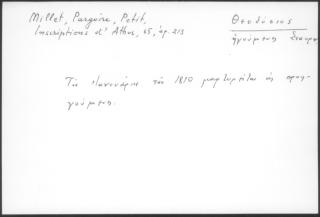 Millet, Pargoire, Petit,
Inscriptions d' Athos, 65, ἀρ. 213
Θεοδόσιος
ἡγούμενος Σταυρο
Τὸν Ἰανουάριο τοῦ 1810 μαρτυρεῖται ὡς προη-
γούμενος.